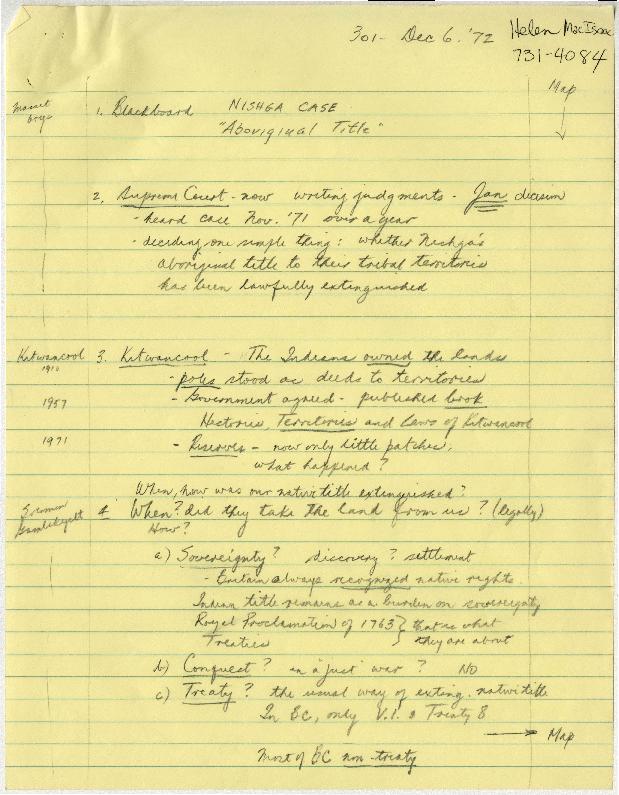 301- Dec 6. '72
Helen MacIsaac
731-4084
Map
Masset
boys
1. Blackboard NISHGA CASE
"Aboriginal Title"
2. Supreme Court - now writing judgments - Jan decision
- heard case Nov. '71 over a year
- deciding one simple thing: whether Nishga's
aboriginal title to their tribal territories
has been lawfully extinguished
Kitwancool
1910
3. Kitwancool - The Indians owned the lands
- poles stood as deeds to territories
1957
- Government agreed - published book
Histories, Territories and Laws of Kitwancool
1971
- Reserves - now only little patches;
what happened?
When, how was our native title extinguished?
4 When? did they take the land from us? (legally)
How?
a) Sovereignty? discovery? settlement
- Britain always recognized native rights.
Indian title remains as a burden on sovereignty
Royal Proclamation of 1763 } that is what
Treaties they are about
b) Conquest? in a 'just' war? NO
c) Treaty? the usual way of exting. native title
In BC, only V.I. & Treaty 8
→ Map
Most of BC non-treaty